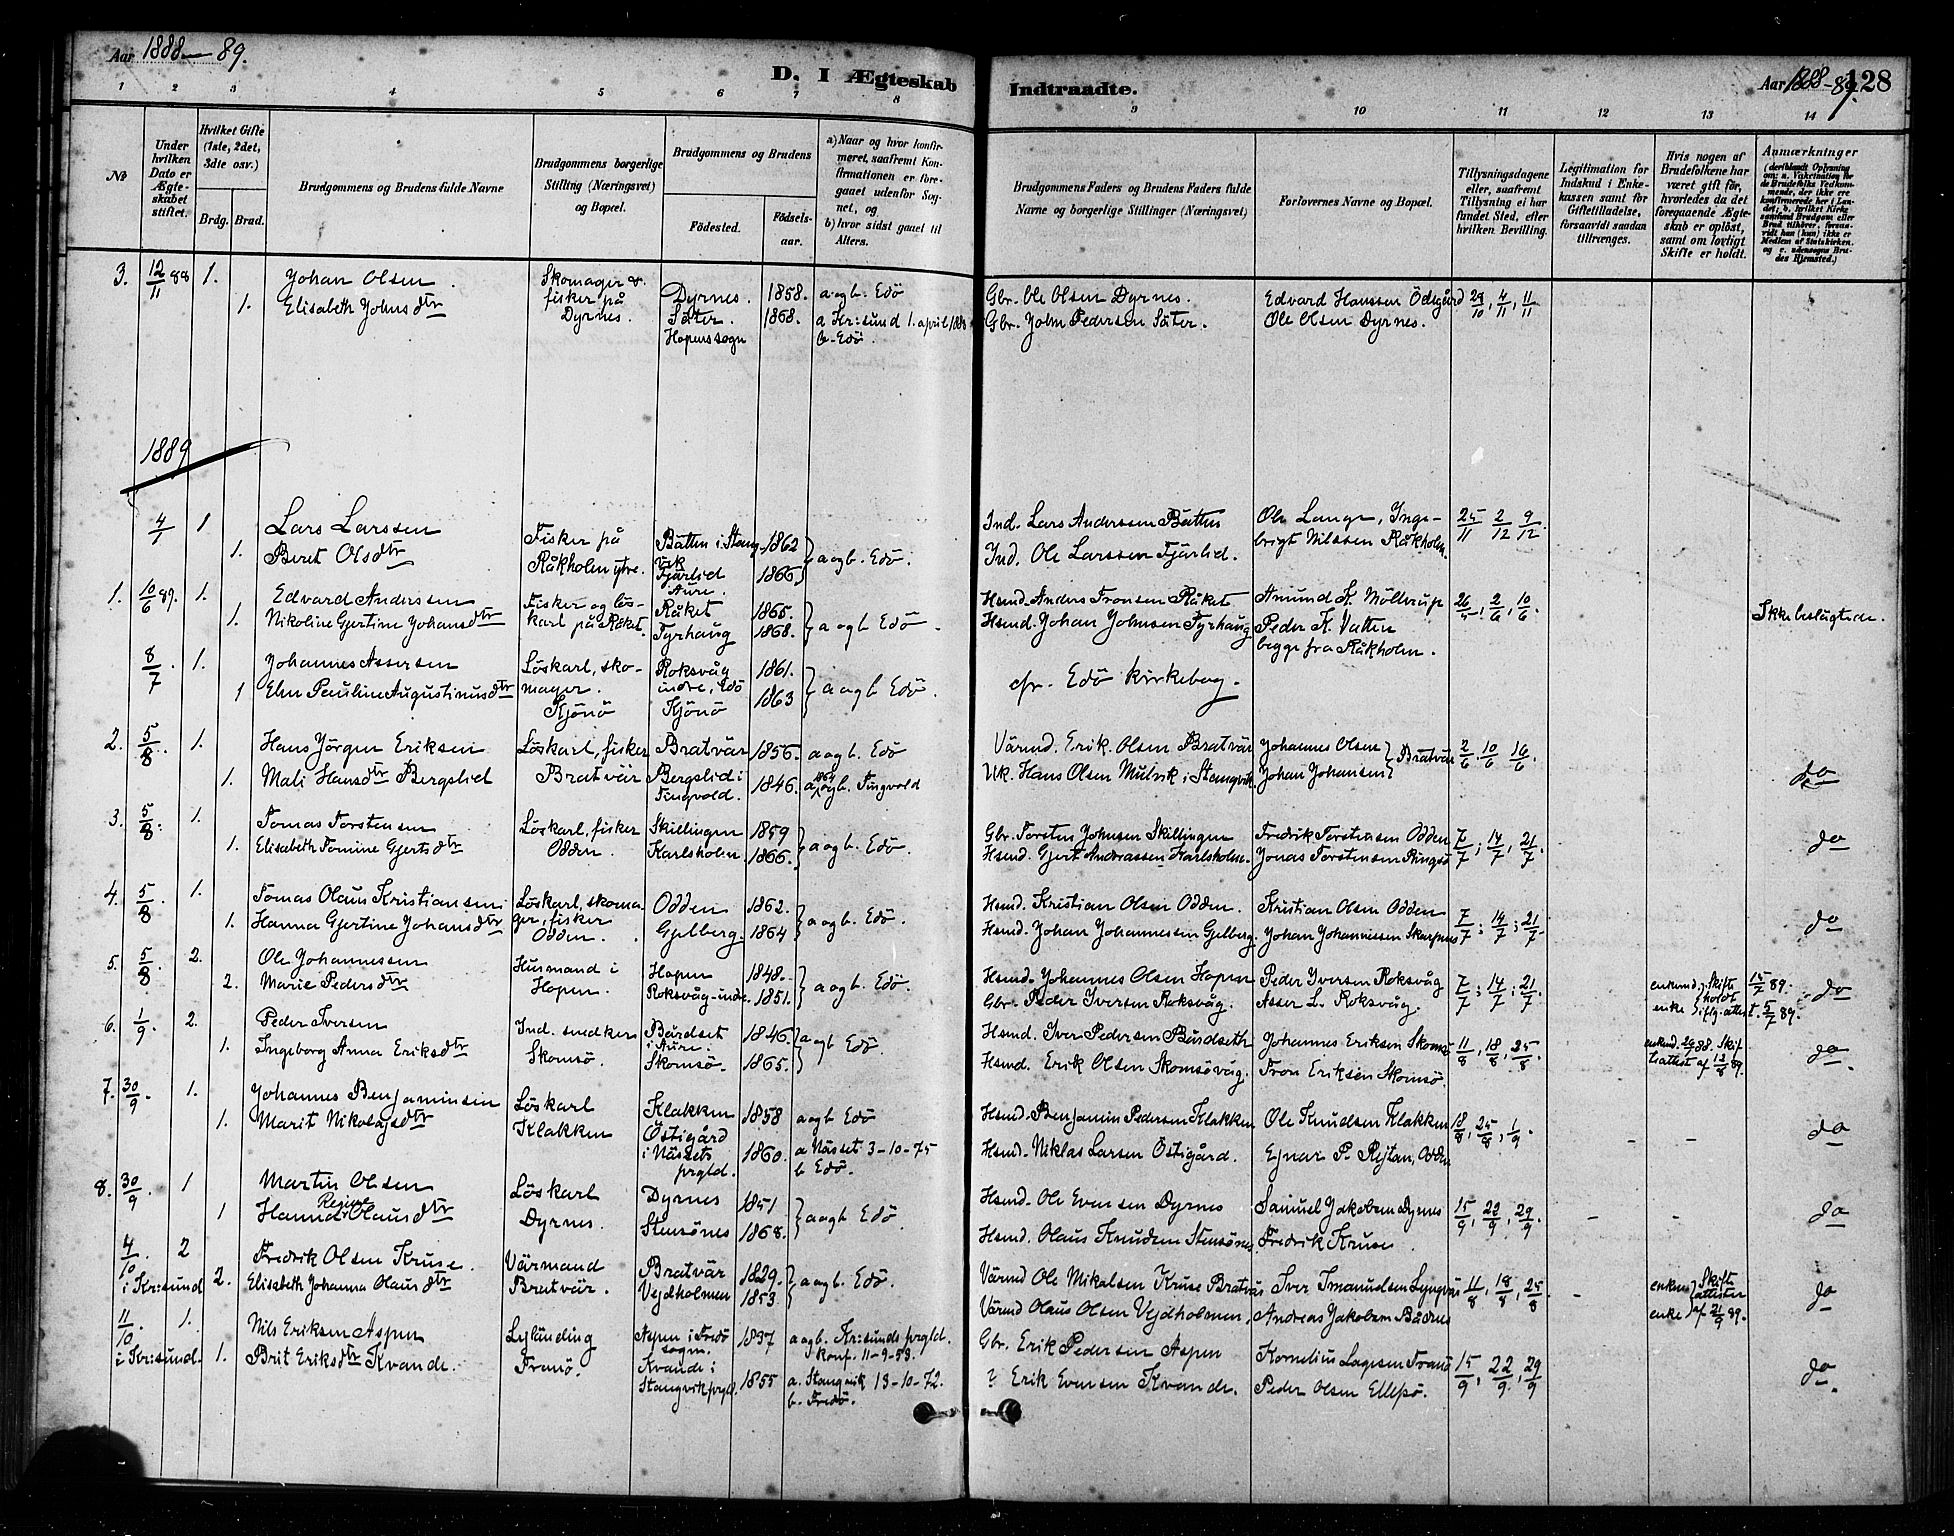 Aar 1888-89.
D. I Ægteskab Indtraadte.
Aar 1888-89. 128
1 2 3 4 5 6 7 8 9 10 11 12 13 14
No
Under hvilken Dato er Ægteskabet stiftet.
Hvilket Gifte (1ste, 2det, 3die osv.)
Brdg. Brud.
Brudgommens og Brudens fulde Navne
Brudgommens borgerlige Stilling (Næringsvei) og Bopæl.
Brudgommens og Brudens
Födested. Födselsaar.
a) Naar og hvor konfirmeret, saafremt Konfirmationen er foregaaet udenfor Sognet, og
b) hvor sidst gaaet til Alters.
Brudgommens Faders og Brudens Faders fulde Navne og borgerlige Stillinger (Næringsvei)
Forlovernes Navne og Bopæl.
Tillysningsdagene eller, saafremt Tillysning ei har fundet Sted, efter hvilken Bevilling.
Legitimation for Indskud i Enkekassen samt for Giftetilladelse, forsaavidt saadan tiltrænges.
Hvis nogen af Brudefolkene har været gift før, hvorledes da det foregaaende Ægteskab er oplöst, samt om lovligt Skifte er holdt.
Anmærkninger
3. 12/11 88 1. Johan Olsen. Skomager & fisker på Dyrnes. Dyrnes. 1858. a og b. Edö Gbr. Ole Olsen Dyrnes. Edvard Hanssen Ödegård 28/10, 4/11, 11/11
1. Elisabeth Johnsdtr Säter. Hopens sogn 1868. a Kr:sund 1. april 1883 b. Edö. Gbr. John Pedersen Säter. Ole Olsen Dyrnes.
1889
4/1 1 Lars Larssen Fisker på Råkholm ytre. Båtten i Stangvik 1862 a og b. Edö. Ind. Lars Anderssen Båtten Ole Lange, Ingebrigt Nilssen Råkholm. 25/11 2/12 9/12
1. Beret Olsdtr Fjärlid i Aure. 1866 Ind. Ole Larssen Fjärlid.
1. 10/6 89. 1. Edvard Anderssen Fisker og löskarl på Råket. Råket 1865. a og b Edö. Hsmd. Anders Fronsen Råket Amund A. Möllerup 26/5, 2/6, 10/6 Ikke beslägtede.
1. Nikoline Gjertine Johansdtr Tyrhaug 1868. Hsmd. Johan Johnsen Tyrhaug Peder K. Vatten begge fra Råkholm.
8/7. 1. Johannes Assersen Löskarl, skomager. Kjönö Roksvåg indre, Edö 1861. a og b Edö. cfr. Edö kirkebog.
1 Elen Pauline Augustinusdtr Kjönö 1863
2. 5/8. 1. Hans Jörgen Eriksen Löskarl, fisker Bratvär Bratvär 1856. a og b. Edö Värmd. Erik Olsen Bratvär Johannes Olsen } Bratvär 2/6. 10/6 16/6.
1. Mali Hansdtr Bergslid Bergslid i Tingvold. 1846. a og b. Tingvold Hans Olsen Mulvik i Stangvik. Johan Johansen do
3. 5/8. 1. Tomas Torstensen Löskarl, fisker Odden. Skillingen 1859 a og b. Edö. Gbr. Torsten Johnsen Skillingen Fredrik Torstensen Odden 7/7; 14/7, 21/7. do
1. Elisabeth Tomine Gjertsdtr Karlsholm 1866. Hsmd. Gjert Andreassen Karlsholm. Jonas Torstensen Ringsö
4. 5/8. 1. Tomas Olaus Kristiansen Löskarl, skomager, fisker Odden. Odden 1862. a og b. Edö. Hsmd. Kristian Olsen Odden. Kristian Olsen Odden 7/7; 14/7; 21/7. do
1. Hanna Gjertine Johansdtr Gjelberg. 1864 Hsmd. Johan Johannessen Gjelberg. Johan Johannessen Skarpnes
5. 5/8 2. Ole Johannessen Husmand i Hopen. Hopen 1848. a og b. Edö. Hsmd. Johannes Olsen Hopen Peder Iversen Roksvåg 7/7; 14/7; 21/7. enkemd. } Skifte holdt 15/7 89. do
2. Marie Pedersdtr Roksvåg-indre. 1851. Gbr. Peder Iversen Roksvåg. Asser L. Roksvåg. enke } iflg. attest. 5/7 89.
6. 1/9. 2. Peder Iversen Ind. snedker Skomsö. Bårdset i Aure. 1846. a og b Edö. Hsmd. Iver Pedersen Bårdseth Johannes Eriksen Skomsö 11/8, 18/8, 25/8. do.
1. Ingeborg Anna Eriksdtr Skomsö. 1865. Hsmd. Erik Olsen Skomsövåg. Fron Eriksen Skomsö.
7. 30/9. 1. Johannes Benjaminsen Löskarl Klakken Klakken 1858 a og b Edö Hsmd. Benjamin Pedersen Klakken Ole Knudsen Klakken 18/8, 25/8, 1/9. - - do
1. Marit Nikolajsdtr Östigård i Nässets prgld. 1860. a Nässet 3-10-75 b Edö. Hsmd. Niklas Larsen Östigård. Ejnar P. Rejtan, Odden
8. 30/9. 1 Martin Olsen Löskarl Dyrnes. Dyrnes 1851 a og b Edö. Hsmd. Ole Evensen Dyrnes Samuel Jakobsen Dyrnes 15/9, 22/9, 29/9. - - do
1 Hanna Regine Olausdtr Stensönes 1868. Hsmd. Olaus Knudsen Stensönes Fredrik Kruse.
4/10. i Kr:sund 2 Fredrik Olsen Kruse. Värmand Bratvär. Bratvär 1829. a og b. Edö. Värmd Ole Mikalsen Kruse Bratvär Iver Imanuelsen Lyngvär 11/8, 18/8, 25/8 - enkem } Skifte attester do
2. Elisabeth Johanna Olausdtr Vejdholmen 1853. Värmd Olaus Olsen Vejdholmen, Andreas Jakobsen Bådnes enke } af 21/9 89.
11/10. i Kr:sund. 1. Nils Eriksen Aspen Lyländing Franö. Aspen i Fredö sogn. 1837 a og b. Kr:sunds prgld. Konf. 11-9-53. Gbr. Erik Pedersen Aspen Kornelius Lagesen Franö 15/9, 22/9, 29/9 do.
1. Brit Eriksdtr Kvande. Kvande i Stangvik prgld. 1855 a. Stangvik 13-10-72. b. Fredö. ? Erik Evensen Kvande. Peder Olsen Ellefsö.